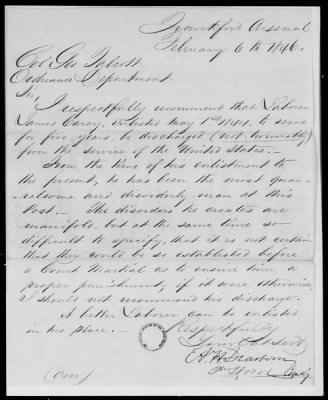 Frankford Arsenal
February 6th 1846.
Col Geo Talcott
Ordnance Department
Sir,
I respectfully recommend that Laborer
James Carey, enlisted May 1st 1844. to serve
for five years, be discharged (not honorably)
from the service of the United States.—
From the time of his enlistment to
the present, he has been the most quar-
relsome and disorderly man at this
Post.— The disorders he creates are
manifold, but at the same time so
difficult to specify, that it is not certain
that they could be so established before
a Court Martial as to insure him a
proper punishment, if it were otherwise,
I should not recommend his discharge.
A better Laborer can be enlisted
in his place.—
Respectfully
Your Obt Servt
(Over)